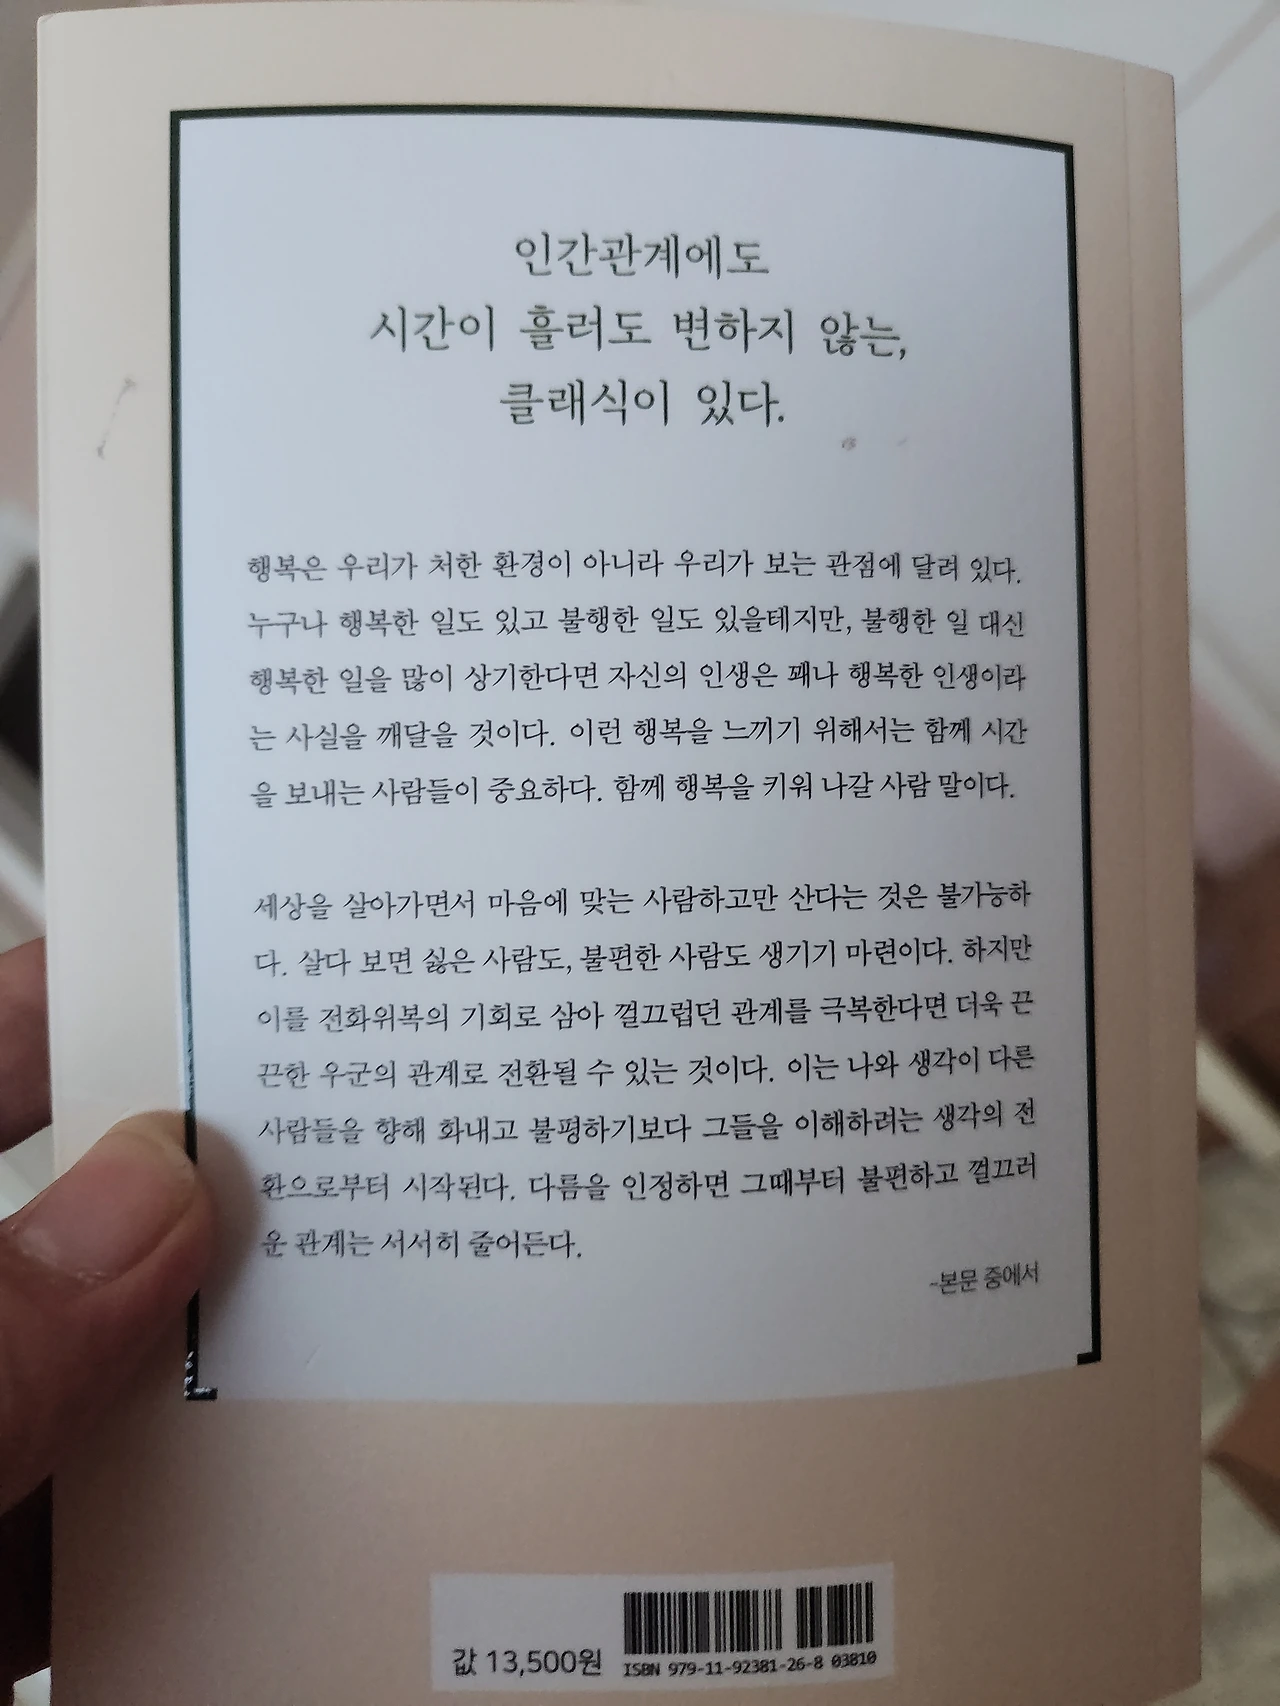 인간관계에도
시간이 흘러도 변하지 않는,
클래식이 있다.
행복은 우리가 처한 환경이 아니라 우리가 보는 관점에 달려 있다.
누구나 행복한 일도 있고 불행한 일도 있을테지만, 불행한 일 대신
행복한 일을 많이 상기한다면 자신의 인생은 꽤나 행복한 인생이라
는 사실을 깨달을 것이다. 이런 행복을 느끼기 위해서는 함께 시간
을 보내는 사람들이 중요하다. 함께 행복을 키워 나갈 사람 말이다.
세상을 살아가면서 마음에 맞는 사람하고만 산다는 것은 불가능하
다. 살다 보면 싫은 사람도, 불편한 사람도 생기기 마련이다. 하지만
이를 전화위복의 기회로 삼아 껄끄럽던 관계를 극복한다면 더욱 끈
끈한 우군의 관계로 전환될 수 있는 것이다. 이는 나와 생각이 다른
사람들을 향해 화내고 불평하기보다 그들을 이해하려는 생각의 전
환으로부터 시작된다. 다름을 인정하면 그때부터 불편하고 껄끄러
운 관계는 서서히 줄어든다.
-본문 중에서
값 13,500원
ISBN 979-11-92381-26-8 03810